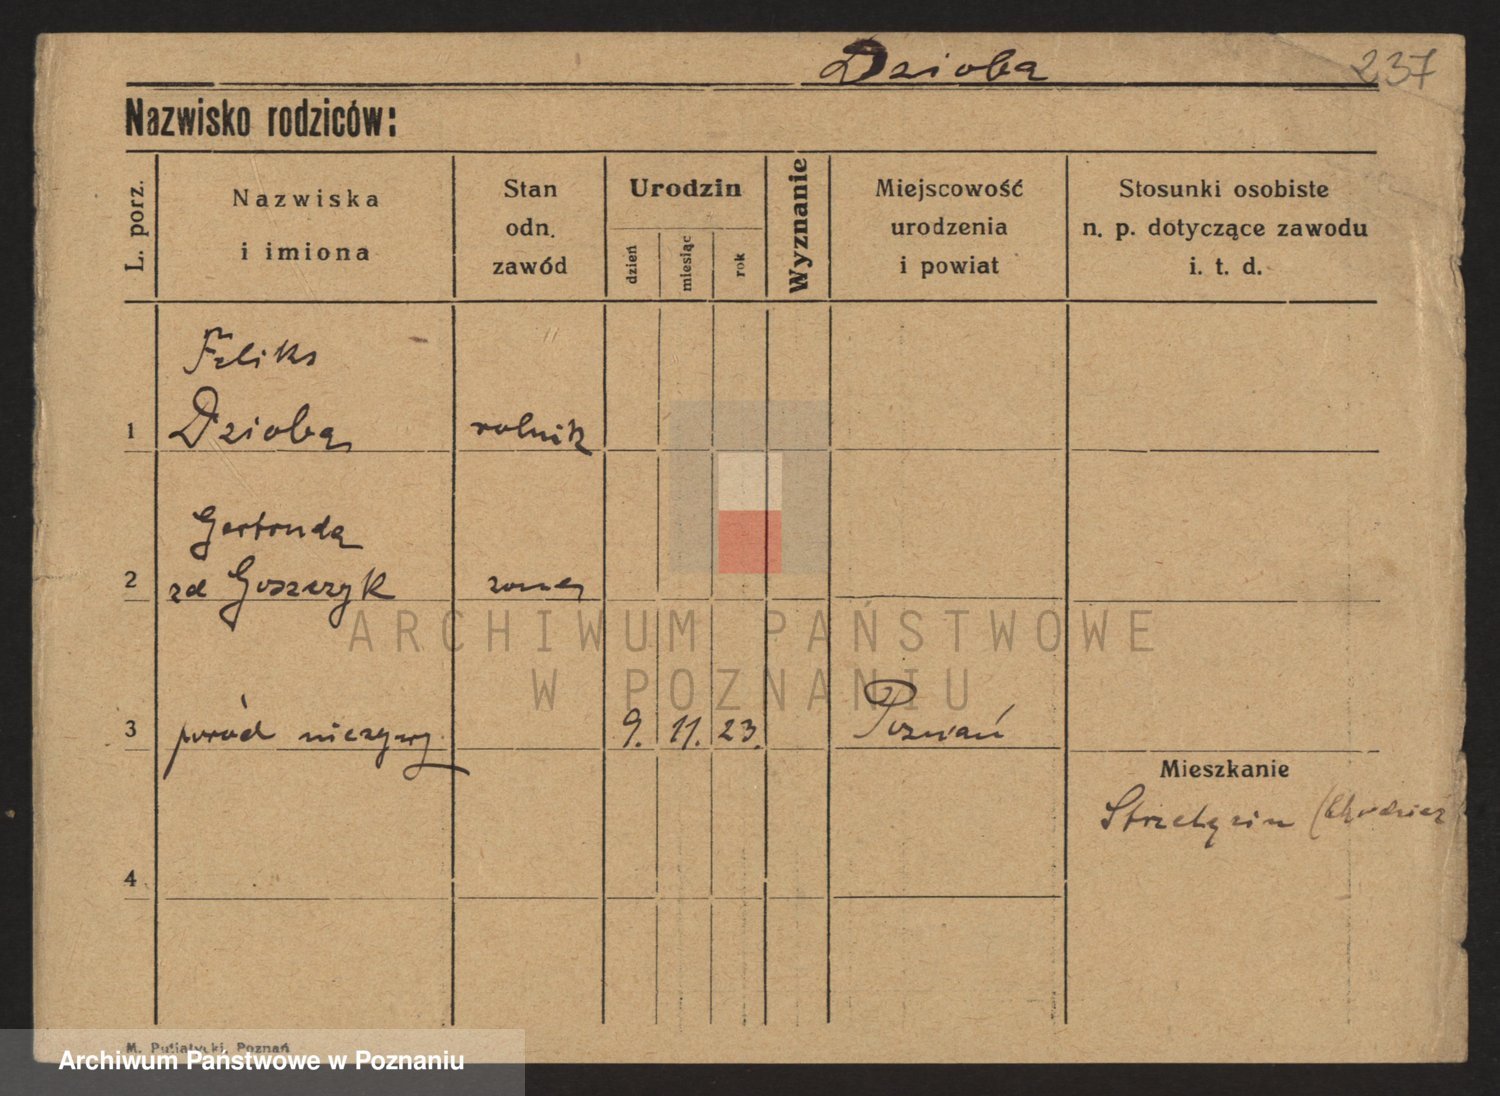 Dzioba 237
Nazwisko rodziców:
L. porz.
Nazwiska
i imiona
Stan
odn.
zawód
Urodzin
dzień
miesiąc
rok
Wyznanie
Miejscowość
urodzenia
i powiat
Stosunki osobiste
n. p. dotyczące zawodu
i. t. d.
Feliks
1 Dzioba rolnik
Gertruda
2 zd Goszczyk żona
ARCHIWUM PAŃSTWOWE
W POZNANIU
3 poród nieżywy 9. 11. 23. Poznań
Mieszkanie
(Chodzież
4
M. Putiatycki, Poznań
Archiwum Państwowe w Poznaniu